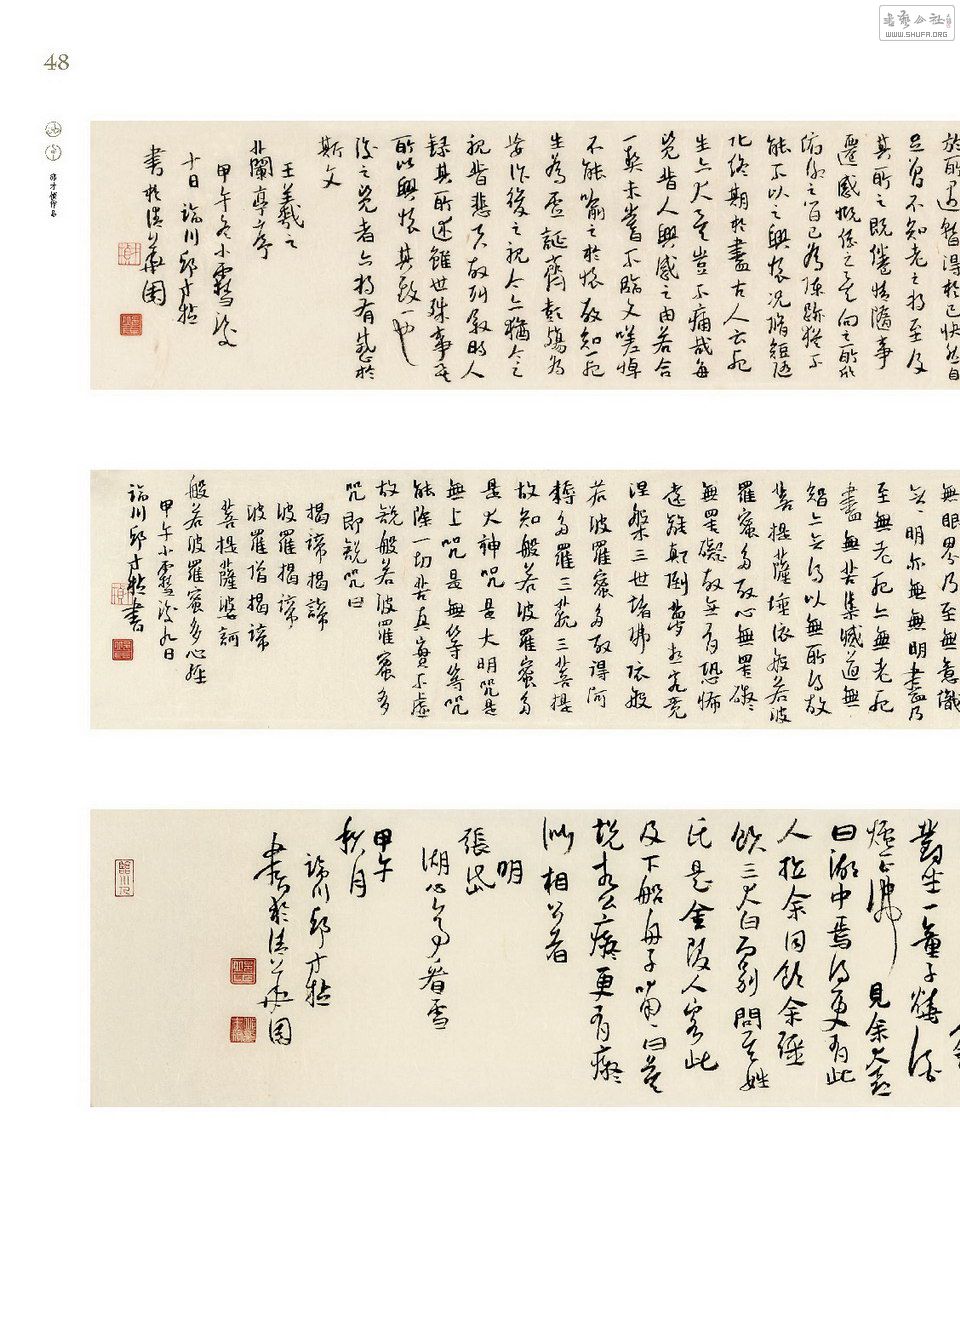 書藝公社
WWW.SHUFA.ORG
48
於所遇暫得於己快然自
足曾不知老之將至及
其所之既倦情隨事
遷感慨係之矣向之所欣
俯仰之間已為陳跡猶不
能不以之興懷況脩短隨
化終期於盡古人云死
生亦大矣豈不痛哉每
覽昔人興感之由若合
一契未嘗不臨文嗟悼
不能喻之於懷故知一死
生為虛誕齊彭殤為
妄作後之視今亦猶今之
視昔悲夫故列敘時人
錄其所述雖世殊事異
所以興懷其致一也
後之覽者亦將有感於
斯文
王羲之
蘭亭序
甲午冬小雪後
十日 臨川邱才楨
書於清華園
無眼界乃至無意識
無無明亦無無明盡乃
至無老死亦無老死
盡無苦集滅道無
智亦無得以無所得故
菩提薩埵依般若波
羅蜜多故心無罣礙
無罣礙故無有恐怖
遠離顛倒夢想究竟
涅槃三世諸佛依般
若波羅蜜多故得阿
耨多羅三藐三菩提
故知般若波羅蜜多
是大神咒是大明咒是
無上咒是無等等咒
能除一切苦真實不虛
故說般若波羅蜜多
咒即說咒曰
揭諦揭諦
波羅揭諦
波羅僧揭諦
菩提薩婆訶
般若波羅蜜多心經
甲午小雪後九日
臨川邱才楨書
對坐一童子燒酒
爐正沸 見余大喜
曰湖中焉得更有此
人拉余同飲余強
飲三大白而別問其姓
氏是金陵人客此
及下船舟子喃喃曰莫
說相公癡更有癡
似相公者
明
張岱
湖心亭看雪
甲午
秋月
臨川邱才楨
書於清華園